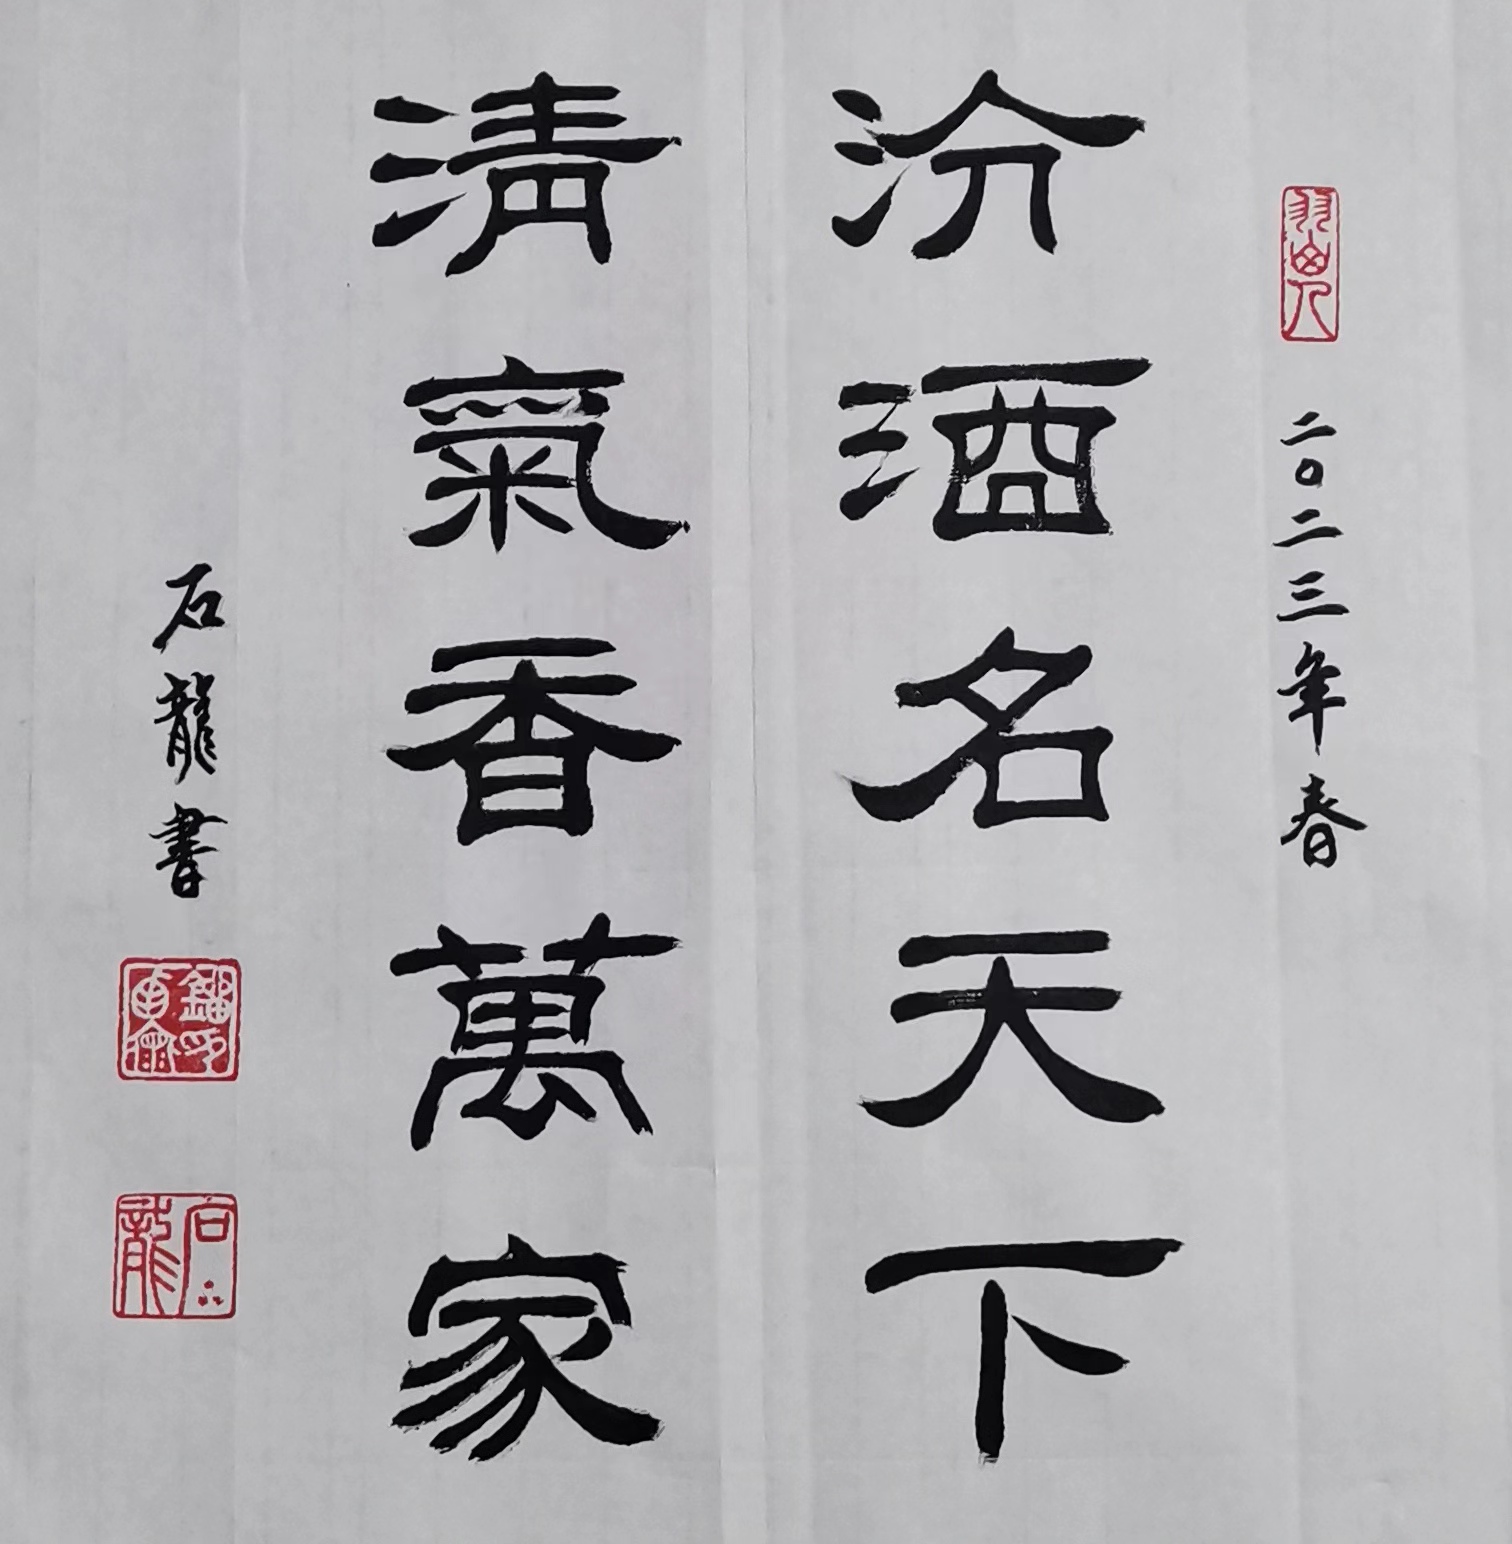 二〇二三年春
汾酒名天下
清氣香萬家
石龍書
石龍